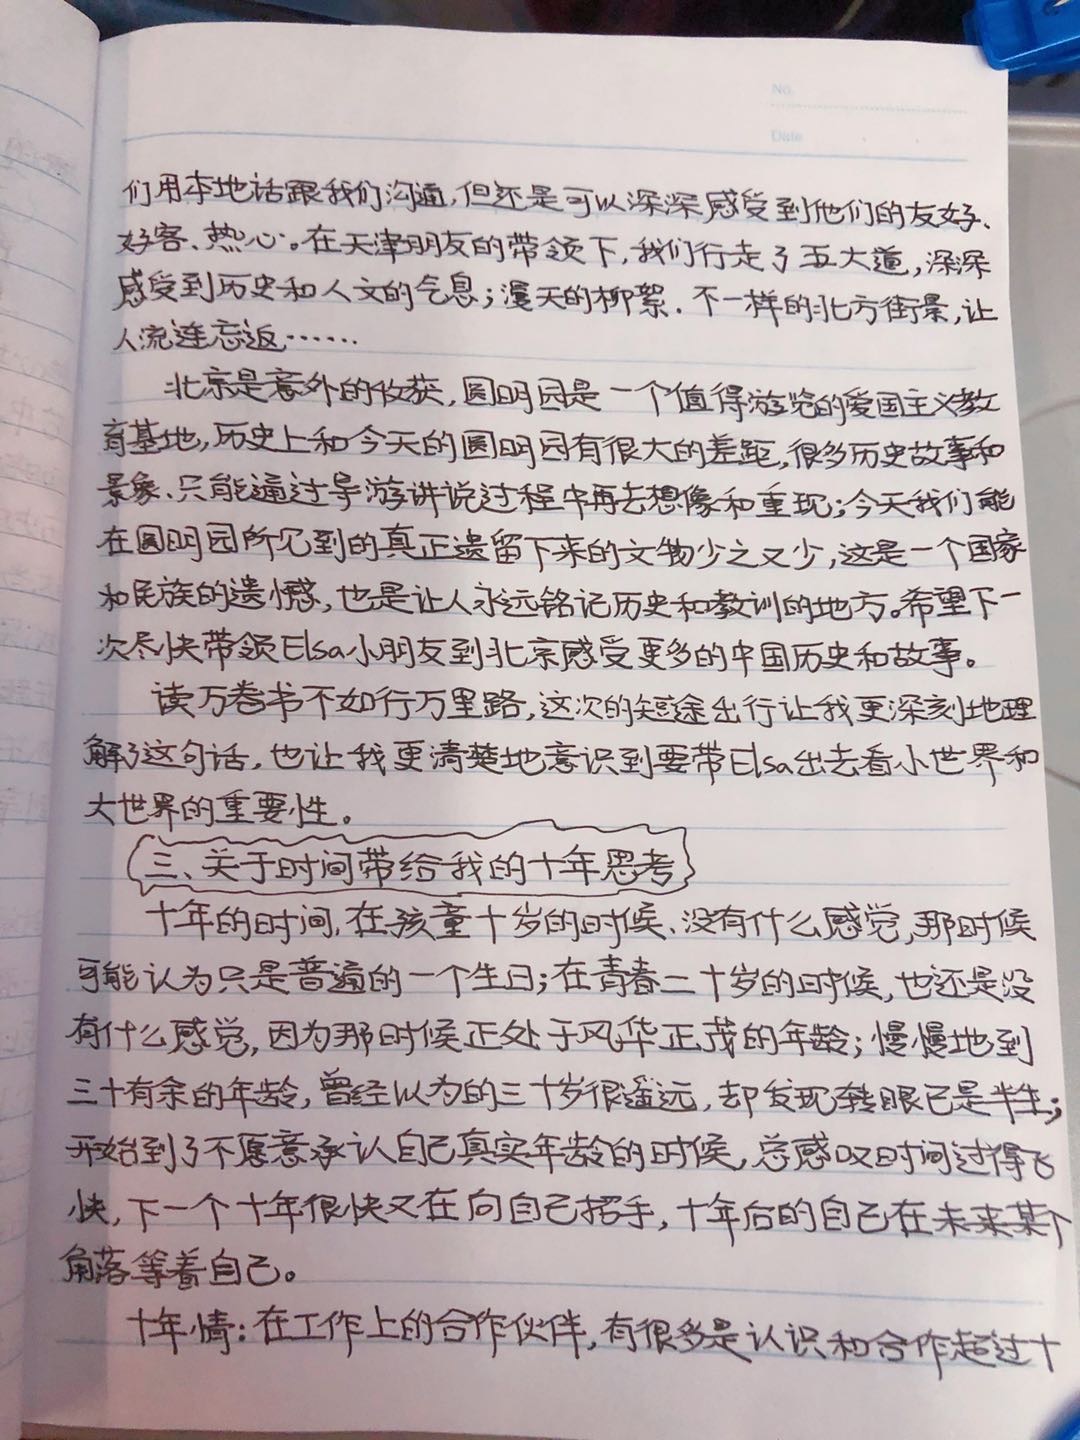 No.
Date
们用本地话跟我们沟通,但还是可以深深感受到他们的友好、
好客、热心。在天津朋友的带领下,我们行走了五大道,深深
感受到历史和人文的气息;漫天的柳絮.不一样的北方街景,让
人流连忘返……
北京是意外的收获,圆明园是一个值得游览的爱国主义教
育基地,历史上和今天的圆明园有很大的差距,很多历史故事和
景象、只能通过导游讲说过程中再去想像和重现;今天我们能
在圆明园所见到的真正遗留下来的文物少之又少,这是一个国家
和民族的遗憾,也是让人永远铭记历史和教训的地方。希望下一
次尽快带领Elsa小朋友到北京感受更多的中国历史和故事。
读万卷书不如行万里路,这次的短途出行让我更深刻地理
解了这句话,也让我更清楚地意识到要带Elsa出去看小世界和
大世界的重要性。
三、关于时间带给我的十年思考
十年的时间,在孩童十岁的时候、没有什么感觉,那时候
可能认为只是普通的一个生日;在青春二十岁的时候,也还是没
有什么感觉,因为那时候正处于风华正茂的年龄;慢慢地到
三十有余的年龄,曾经以为的三十岁很遥远,却发现转眼已是半生;
开始到了不愿意承认自己真实年龄的时候,总感叹时间过得飞
快,下一个十年很快又在向自己招手,十年后的自己在未来某个
角落等着自己。
十年情:在工作上的合作伙伴,有很多是认识和合作超过十